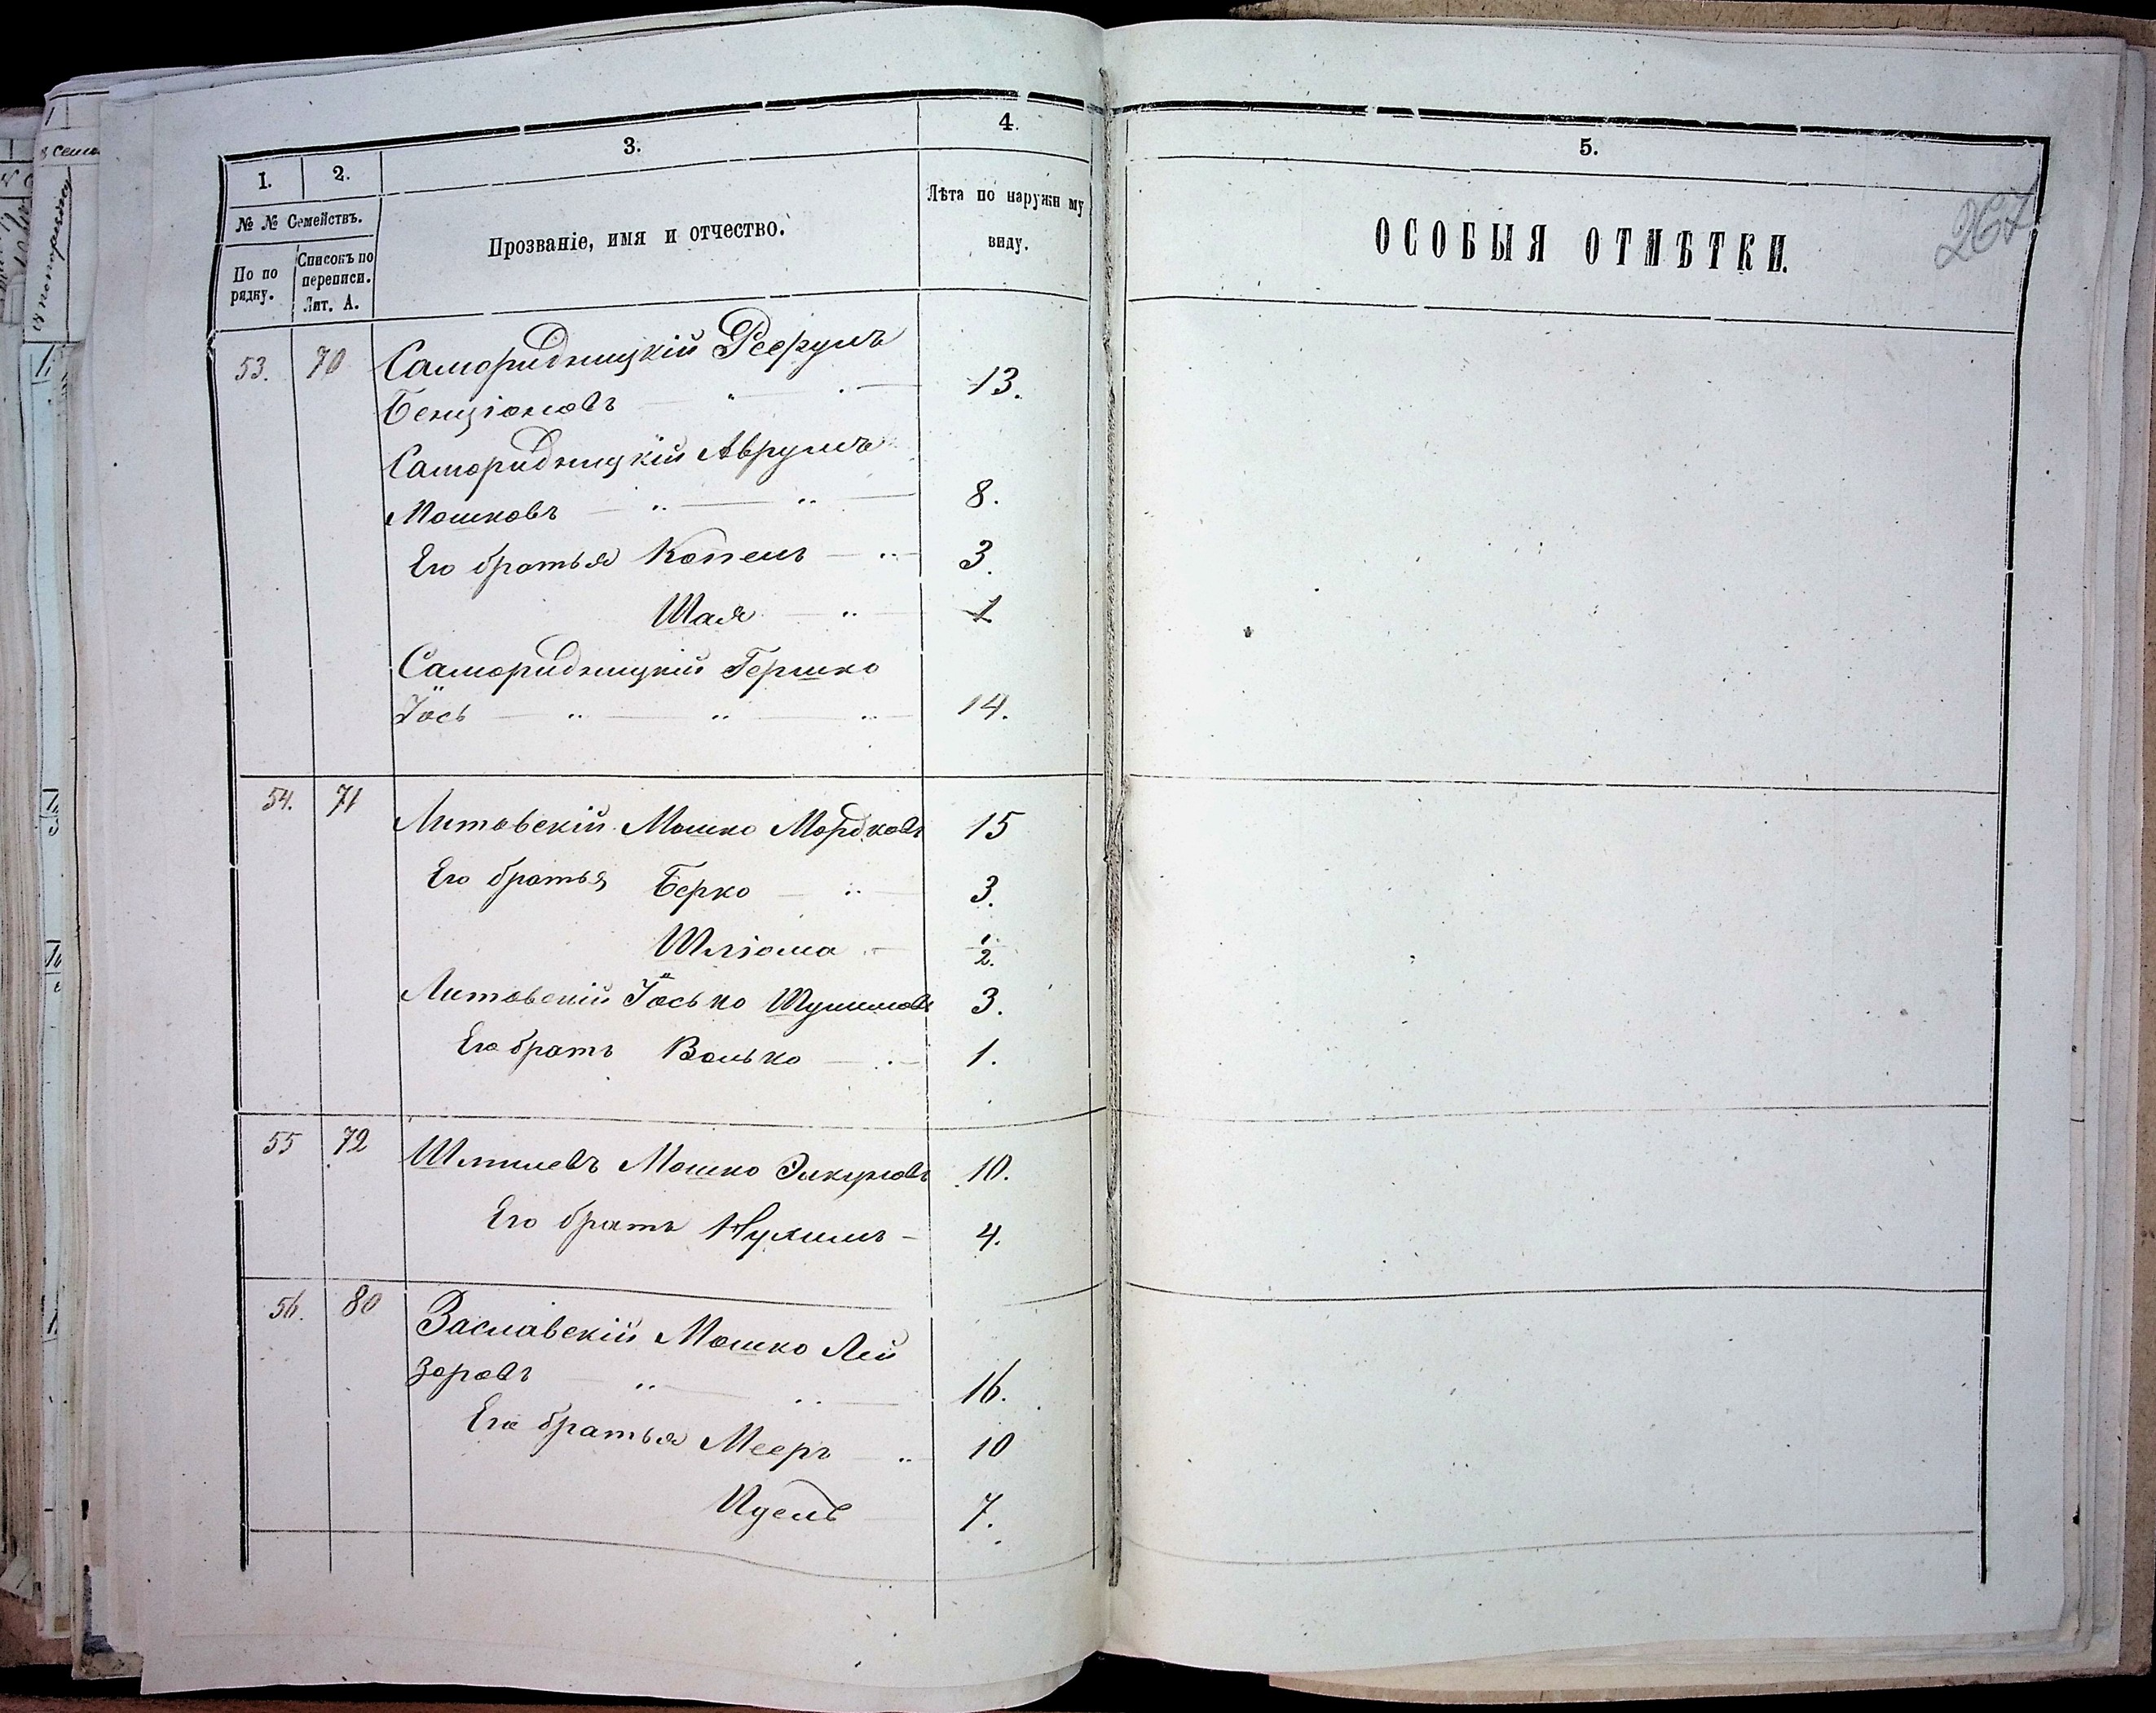 1.
2.
3.
4.
№ № Семействъ.
По по
рядку.
Списокъ по
переписи.
Лит. А.
Прозваніе, имя и отчество.
Лѣта по наружн му
виду.
53. 70 Саморидницкій
Бенціоновъ 13.
Саморидницкій Аврумъ
Мошковъ 8.
Его братья Копель 3.
Шая 1
Саморидницкій Гершко
Іось 14.
54. 71 Литовскій Мошко Мордковъ 15
Его братья Берко 3.
Шліома 1/2.
Литовскій Іосько 3.
Его братъ Волько 1.
55 72 Мошко 10.
Его братъ Нухимъ 4.
56. 80 Заславскій Мошко Лей
зоровъ 16.
Его братья Мееръ 10
Идель 7.
5.
ОСОБЫЯ ОТМѢТКИ.
267